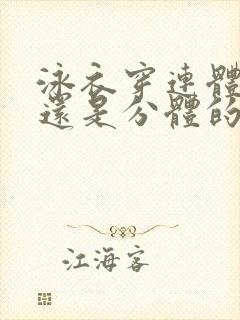 泳衣穿連體
還是分體的
江海客